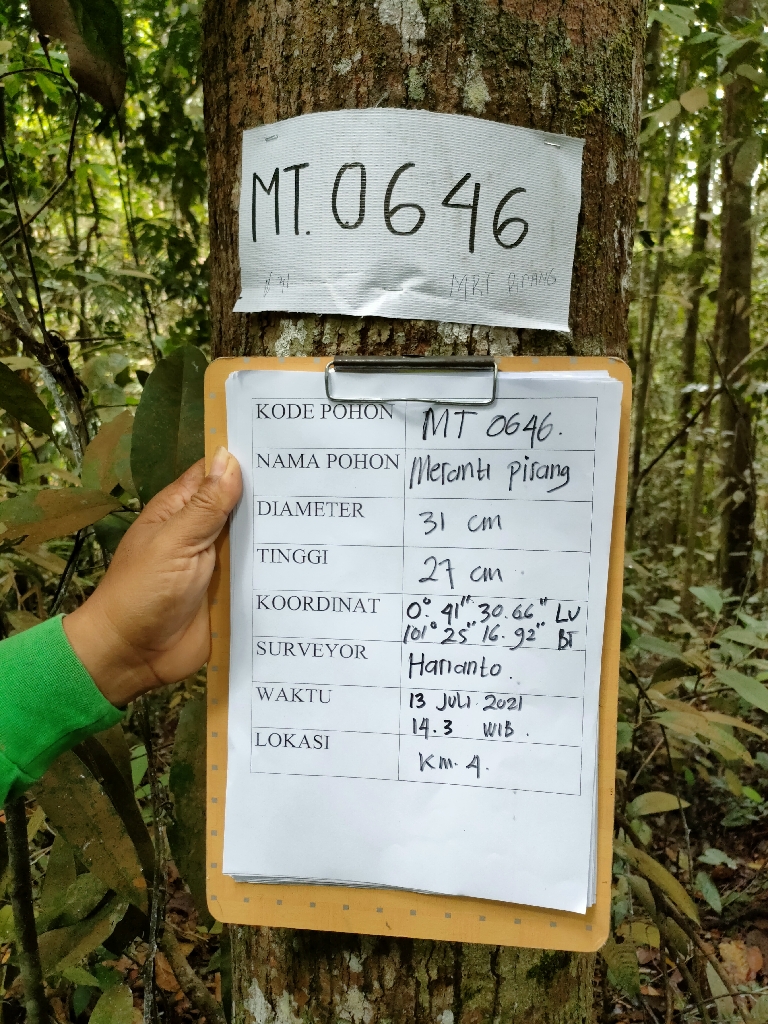 MT. 0646
KODE POHON MT 0646.
NAMA POHON Meranti pirang
DIAMETER 31 cm
TINGGI 27 cm
KOORDINAT 0° 41" 30.66" LU
101° 25" 16.92" BT
SURVEYOR Harianto.
WAKTU 13 JULI 2021
14.3 WIB.
LOKASI Km. 4.